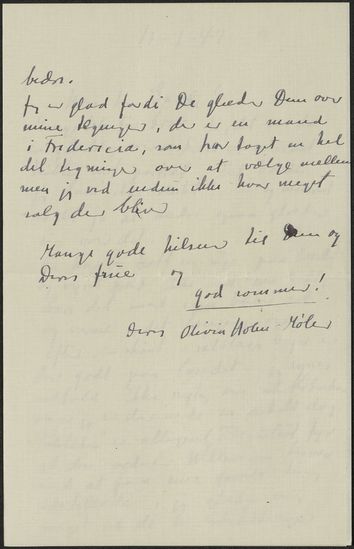 bedre.
Jeg er glad fordi De glæder Dem over
mine tegninger, der er en mand
i Fredericia, som har taget en hel
del tegninger over at vælge mellem
men jeg ved endnu ikke hvor meget
salg der bliver
Mange gode hilsner til Dem og
Deres frue og
god sommer!
Deres Olivia Holm-Møller